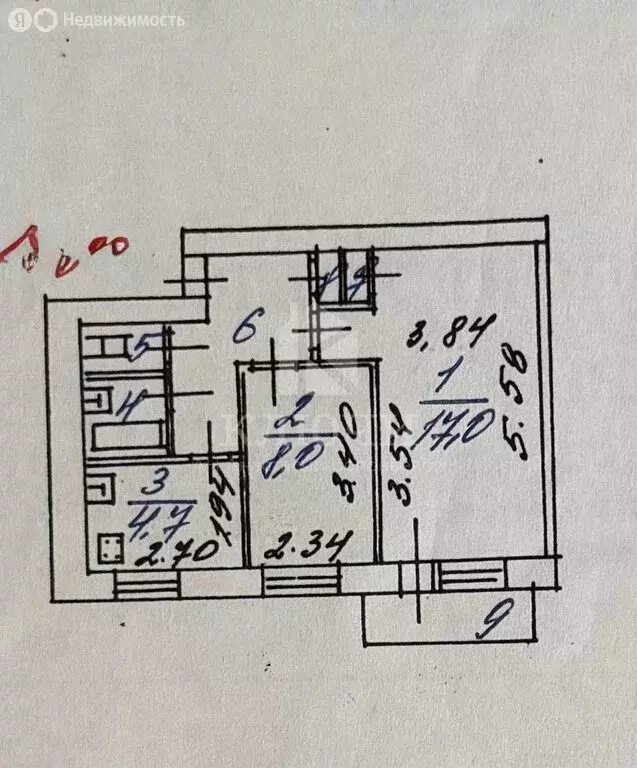 Я Недвижимость
7 8
5
6
3,84
1
17,0
5.58
4
2
8,0
3.40
3.54
КЛЮЧИ
3
4,7
1.94
2.70
2.34
9